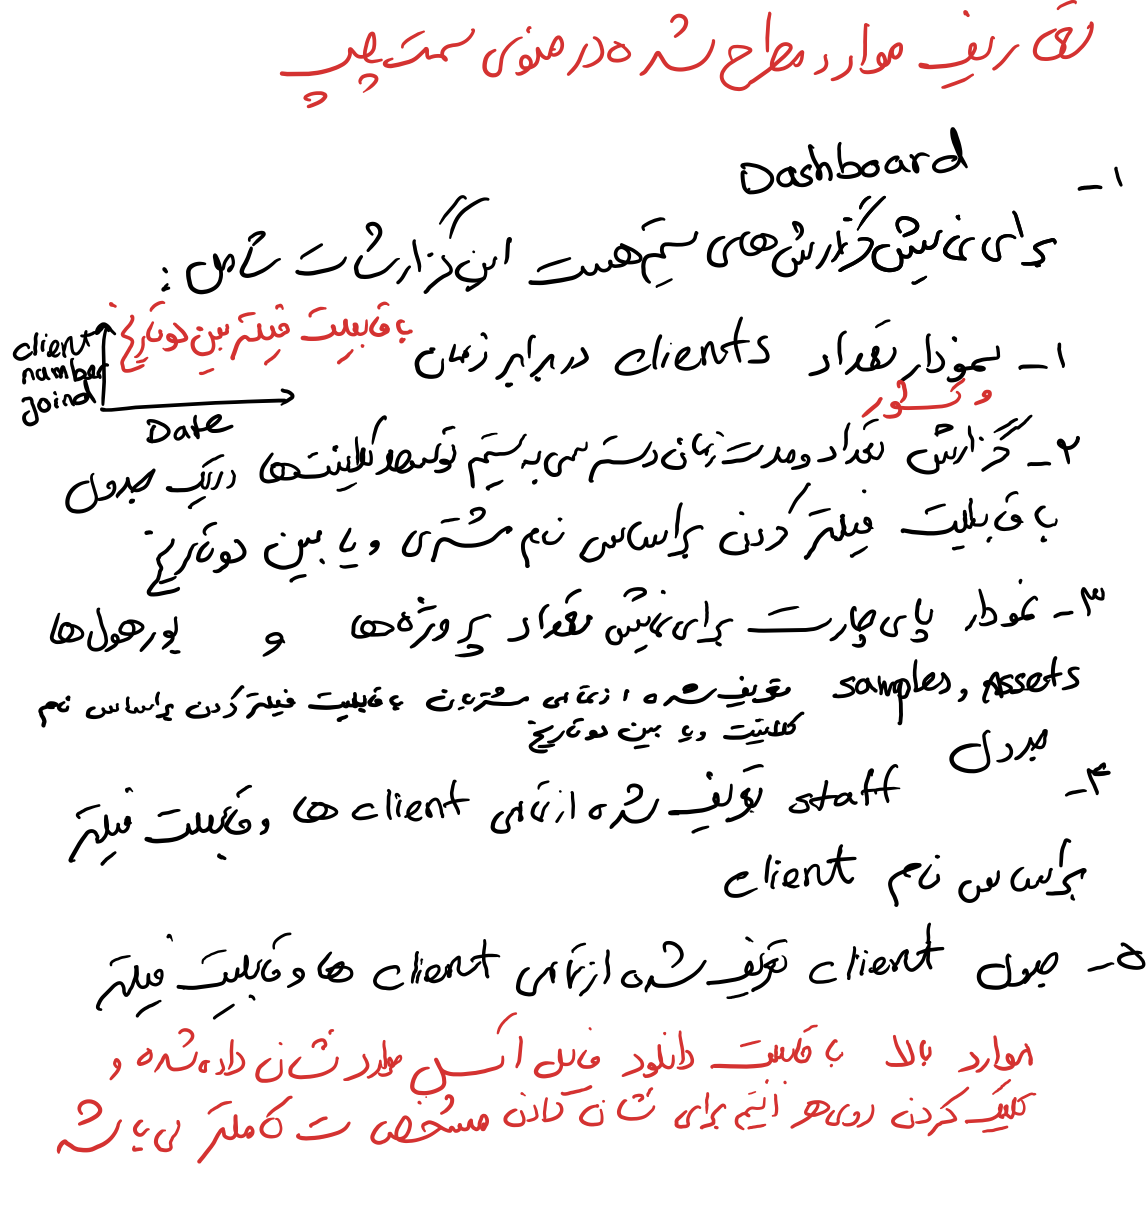 تعاریف موارد مطرح شده در منوی سمت چپ
۱- Dashboard
برای نمایش گزارش‌های سیستم هست این گزارشات شامل :
۱- نمودار تعداد clients در برابر زمان با قابلیت فیلتر بین دو تاریخ
و کشور
client number joind
Date
۲- گزارش تعداد و مدت زمان دسترسی به سیستم توسط کلاینت‌ها در یک جدول
با قابلیت فیلتر کردن براساس نام مشتری و یا بین دو تاریخ
۳- نمودار پای چارت برای نمایش تعداد پروژه‌ها و بورهول‌ها
samples, Assets تعریف شده از تمامی مشتریان با قابلیت فیلتر کردن براساس نام
کلاینت و یا بین دو تاریخ
۴- جدول staff تعریف شده از تمامی client ها و قابلیت فیلتر
براساس نام client
۵- جدول client تعریف شده از تمامی client ها و قابلیت فیلتر
موارد بالا با قابلیت دانلود فایل اکسل موارد نشان داده شده و
کلیک کردن روی هر آیتم برای نشان دادن مشخصات کاملتر می باشد